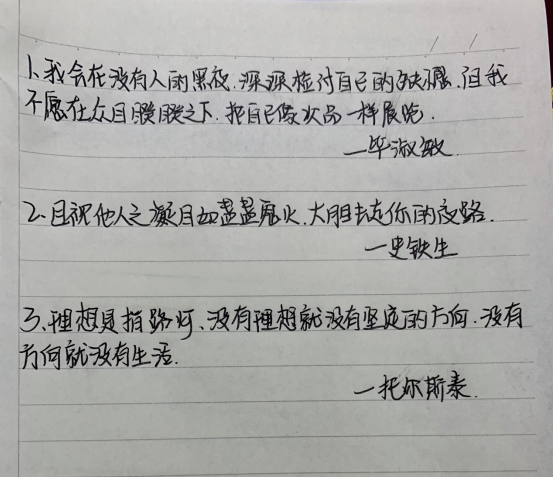 1、我会在没有人的黑夜.深深检讨自己的缺憾.但我
不愿在众目睽睽之下.把自己像次品一样展览.
—毕淑敏.
2、且视他人之凝目如盏盏鬼火.大胆去走你的夜路.
—史铁生
3、理想是指路灯、没有理想就没有坚定的方向.没有
方向就没有生活.
—托尔斯泰.